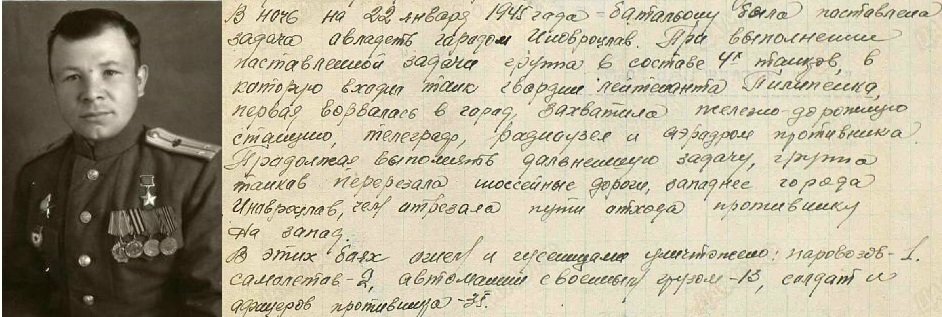 В ночь на 22 января 1945 года батальону была поставлена
задача авладеть городом Иновроцлав. При выполнении
поставленной задачи группа в составе 4х танков, в
которую входил танк гвардии лейтенанта Пилипенка,
первая ворвалась в город, захватила железно-дорожную
станцию, телеграф, радиоузел и аэрадром противника.
Прадолжая выполнять дальнейшую задачу, группа
танков перерезала шоссейные дороги, западнее города
Иновроцлав, чем атрезала пути отхода противнику
на запад.
В этих боях огнем и гусеницами уничтожено: паровозов-1.
самолетов-2, автомашин с военным грузом-13, солдат и
афицеров противника-35.